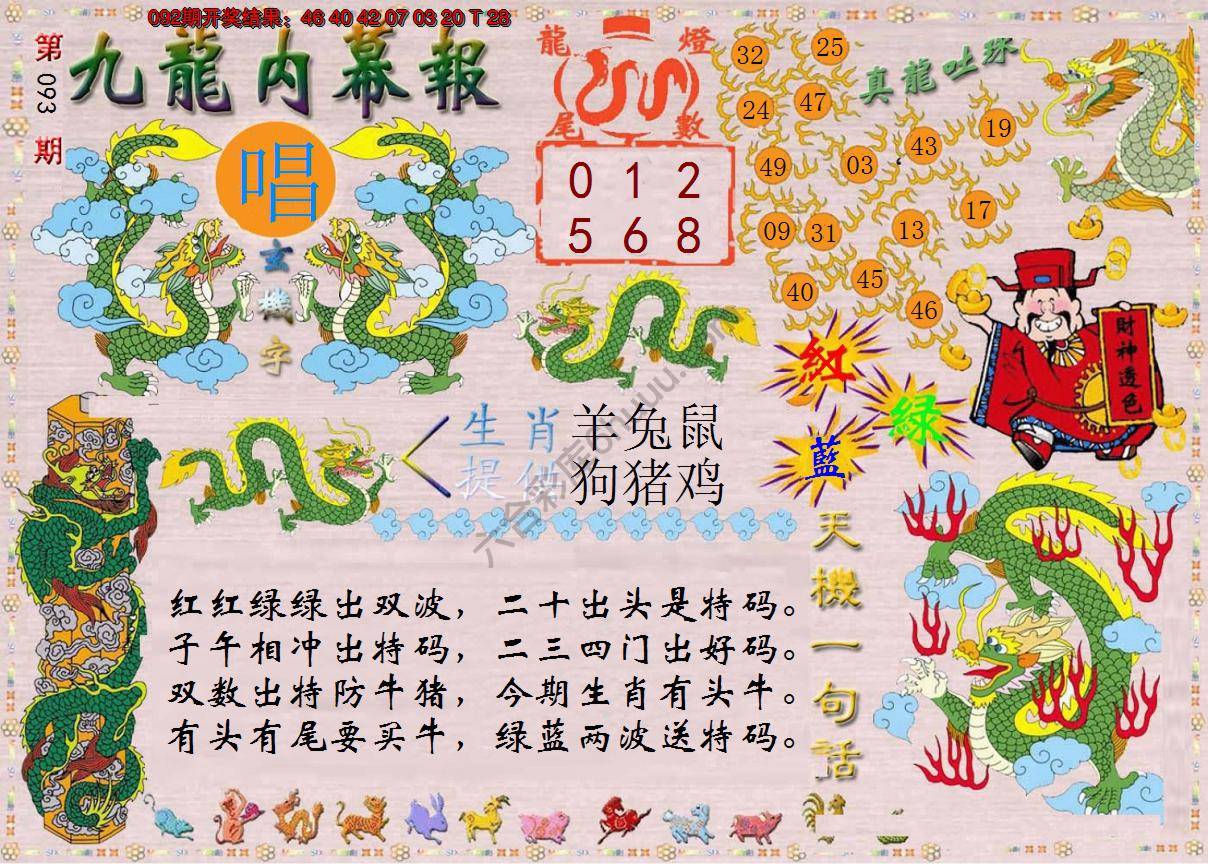 092期开奖结果：46 40 42 07 03 20 T 28
第093期
九龍内幕報
唱
玄機字
龍燈尾數
0 1 2
5 6 8
真龍吐珠
32 25
24 47
49 03 43 19
09 31 13 17
40 45 46
財神透色
紅
绿
藍
生肖 羊兔鼠
提供 狗猪鸡
天機一句話
红红绿绿出双波，二十出头是特码。
子午相冲出特码，二三四门出好码。
双数出特防牛猪，今期生肖有头牛。
有头有尾要买牛，绿蓝两波送特码。